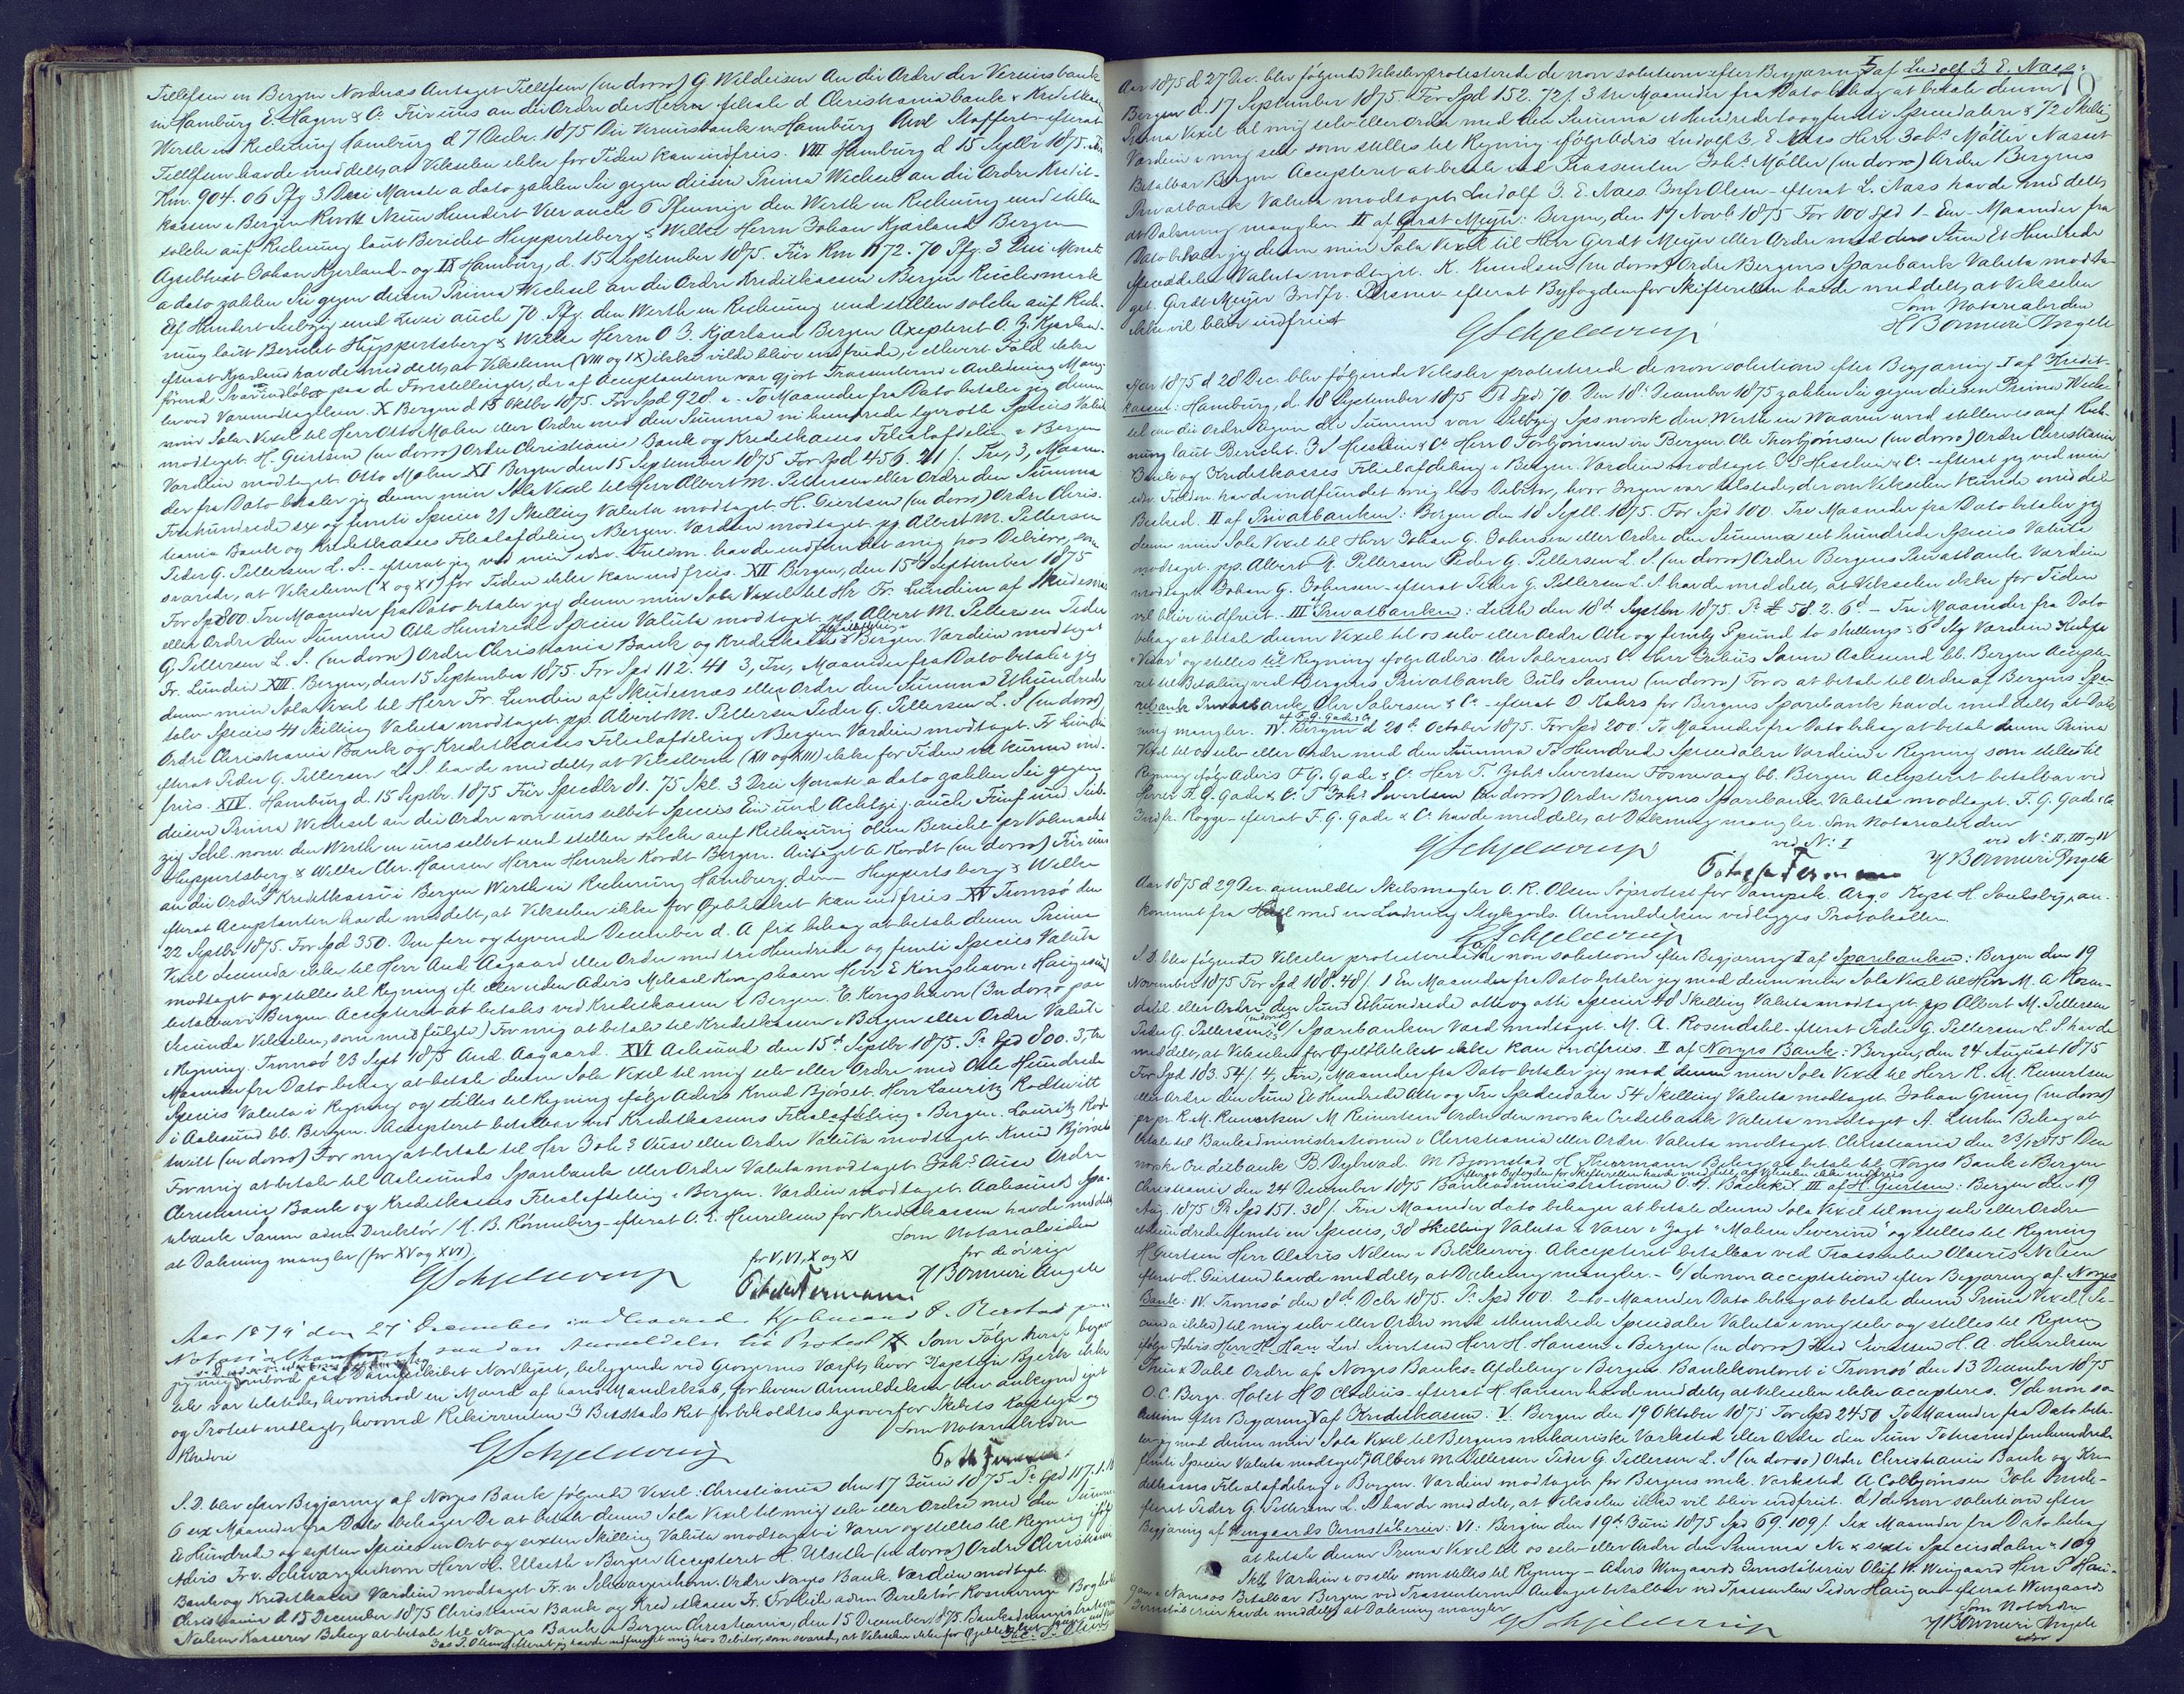 Tillefsen in Bergen Nordnæs Antaget Tillefsen (in dorso) G Wildeisen An die Ordre der Vereinsbank
in Hamburg E. Hagen & Co Für uns an die Ordre der Herrn Filiale d Christiania bank & Kreditkasse
Werth in Rechnung Hamburg d 7 Decbr. 1875 Die Vereinsbank in Hamburg efterat
Tillefsen havde meddelt, at Vekselen ikke for Tiden kan indfries. VIII Hamburg d 15 Septbr 1875. Für
Rm. 904. 06 Pfg 3 Drei Monate a dato zahlen Sie gegen diesen Prima Wechsel an die Ordre Kredit-
kassen i Bergen Rmk Neun Hundert Vier auch 6 Pfennige den Werth in Rechnung und stellen
solche auf Rechnung laut Bericht Huppertsberg & Wilke Herrn Johan Kjærland Bergen
Johan Kjerland - og IX Hamburg, d. 15 September 1875. Für Rm 1172. 70 Pfg. 3 Drei Monate
a dato zahlen Sie gegen diesen Prima Wechsel an die Ordre Kreditkassen i Bergen Reichsmark
Elf Hundert Siebzig und Zwei auch 70 Pfg. den Werth in Rechnung und stellen solche auf Rech-
nung laut Bericht Huppertsberg & Wilke Herrn O J. Kjærland Bergen Axepteret O. J. Kjærland
efterat Kjærland havde meddelt, at Vekslerne (VIII og IX) ikke vilde blive indfriede, i ethvert Fald ikke
førend Svar indløber paa de Forestillinger, der af Acceptanterne var gjort Trassenterne i Anledning Mang-
ler ved Varemodtagelsen. X Bergen d 15 Oktbr 1875. For Spd 928. - To Maaneder fra Dato betaler jeg denne
min Sola-Vexel til Herr Otto Mohn eller Ordre med den Summa ni hundrede tyve otte Species Valuta
modtaget. H. Geirtsen (in dorso) Ordre Christiania Bank og Kreditkasses Filialafdeling i Bergen
Værdien modtaget. Otto Mohn XI Bergen den 15 September 1875 For Spd 456. 21 /. Tre, 3, Maane-
der fra Dato betaler jeg denne min Sola Vexel til Herr Albert M. Pettersen eller Ordre den Summa
Firehundrede sex og femti Species 21 Skilling Valuta modtaget H. Giertsen (in dorso) Ordre Chris-
tiania Bank og Kreditkasses Filialafdeling i Bergen. Værdien modtaget pp Albert M. Pettersen
Peder G. Pettersen L. S. - efterat jeg ved min edsv. Fuldm. havde indfundet mig hos Debitor, som
svarede, at Vekslerne (X og XI) for Tiden ikke kan indfries. XII Bergen, den 15d September 1875
For Spd 800. Tre Maaneder fra Dato betaler jeg denne min Sola Vexel til Hr Fr. Lundin af Skudesnæs
eller Ordre den Summa Otte Hundrede Species Valuta modtaget pp. Albert M. Pettersen Peder
G. Pettersen L. S. (in dorso) Ordre Christiania Bank og Kreditkasse Filialafdeling i Bergen. Værdien modtaget
Fr. Lundin XIII. Bergen, den 15 September 1875. For Spd 112. 41 3, Tre, Maaneder fra Dato betaler jeg
denne min Sola Vexel til Herr Fr. Lundin af Skudesnæs eller Ordre den Summa Ethundrede
tolv Species 41 Skilling Valuta modtaget pp. Albert M. Pettersen Peder G. Pettersen L. S (in dorso)
Ordre Christiania Bank og Kreditkasses Filialafdeling i Bergen Værdien modtaget. Fr Lundin
efterat Peder G. Pettersen L. S. havde meddelt, at Vekslerne (XII og XIII) ikke for Tiden vil kunne ind-
fries. XIV. Hamburg d. 15 Septbr. 1875 Für Speciedlr 81. 75 Skl. 3 Drei Monate a dato zahlen Sie gegen
diesen Prima Wechsel an die Ordre von uns selbst Species Ein und Achtzig auch Fünf und Sieb-
zig Schl. norw. den Werth in uns selbst und stellen solche auf Rechnung ohne Bericht pr Volmacht
Huppertsberg & Wilke Chr. Hansen Herrn Henrik Kordt Bergen. Antaget A Kordt (in dorso) Für uns
an die Ordre Kreditkassen i Bergen Werth in Rechnung Hamburg den Huppertsberg & Wilke
efterat Acceptanten havde meddelt, at Vekselen ikke for Øieblikket kan indfries XV Tromsø den
22 Septbr 1875. For Spd 350. Den fire og tyvende December d. A fix behag at betale denne Prima
Vexel secunda ikke til Herr And Aagaard eller Ordre med tre Hundrede og femti Species Valuta
modtaget og stilles til Regning eft eller uden Advis Mikael Kongshavn Herr E Kongshavn i Haugesund
betalbar i Bergen. Accepteret at betales ved Kreditkassen i Bergen. E. Kongshavn (In dorso paa
Secunda Vekselen, som medfulgte) For mig at betale til Kreditkassen i Bergen eller Ordre Valuta
i Regning. Tromsø 23 Sept 1875 And. Aagaard. XVI Aalesund den 15d Septbr 1875. Pr Spd 800. 3, tre
Maaneder fra Dato behag at betale denne Sola Vexel til mig selv eller Ordre med Otte Hundrede
Species Valuta i Regning og stilles til Regning ifølge Advis Knud Bjørset. Herr Lauritz Rødtwitt
i Aalesund bb. Bergen. Accepteret betalbar ved Kreditkassens Filialafdeling i Bergen. Lauritz Rød-
twitt (in dorso) For mig at betale til Hr Johs Ause eller Ordre Valuta modtaget. Knud Bjørset
For mig at betale til Aalesunds Sparebank eller Ordre Valuta modtaget. Johs Ause Ordre
Christiania Bank og Kreditkasses Filialafdeling i Bergen. Værdien modtaget. Aalesunds Spa-
rebank Sanne adm. Direktør / M. B. Rønneberg - efterat O. E. Henriksen for Kreditkassen havde meddelt,
at Dækning mangler (for XV og XVI)
Som Notarialvidne
for V, VI, X og XI
for de øvrige
GSchjelderup
H Bonnevi Angell
Aar 1875 den 27 December indleverede Kjøbmand J. Berstad paa
Notarialkontoret saadan Anmeldelse til Protest Som Følge heraf begav
jeg mig ombord paa Dampskibet Nordlyset, beliggende ved Georgernes Værft, hvor Captein Bjerk ikke
selv var tilstede, hvorimod en Mand af hans Mandskab, for hvem Anmeldelsen blev
og Protest nedlagt, hvorved Rekvirenten J Berstads Ret forbeholdtes ligeoverfor Skibets Kaptein og
Rhederi
Som Notarialvidne
GSchjelderup
S. D. blev efter Begjæring af Norges Bank følgende Vexel: Christiania den 17 Juni 1875 Pr Spd 117. 1. 16
6 sex Maaneder fra Dato behager De at betale denne Sola Vexel til mig selv eller Ordre med den Summa
Et Hundrede og sytten Species en Ort og sexten Skilling Valuta modtaget i Varer og stilles til Regning ifølge
Advis Fr v. Schwarzenhorn Herr H. Ulseth i Bergen Accepteret H. Ulseth (in dorso) Ordre Christiania
Bank og Kreditkasse Værdien modtaget Fr. v Schwarzenhorn. Ordre Norges Bank. Værdien modtaget.
Christiania d 15 December 1875 Christiania Bank og Kreditkasse Fr. Frølich adm. Direktør Rosenkrantz Bogholder
Nielsen Kasserer Behag at betale til Norges Bank i Bergen Christiania, den 15 December 1875. Bankadministrationen
Jac S. Olsen efterat jeg havde indfundet mig hos Debitor, som svarede, at Vekselen ikke for Øieblikket kan indfries
Aar 1875 d 27 Dec. blev følgende Veksler protesterede de non solutione efter Begjæring I af Ludolf J. E. Naes:
Bergen d. 17 September 1875. For Spd 152. 72 /. 3 tre Maaneder fra Dato behag at betale denne
Prima Vexel til mig selv eller Ordre med den Summa et Hundrede to og femti Speciedalere & 72 Skilling
Værdien i mig selv som stilles til Regning ifølge Advis Ludolf J. E. Naes Herr Johs Møller Næsset
Betalbar Bergen Accepteret at betale ved Trassenten Johs Møller (in dorso) Ordre Bergens
Privatbank Valuta modtaget Ludolf J. E. Naes. Indfr Olsen - efterat L. Naes havde meddelt,
at Dækning mangler II af Gerdt Meyer: Bergen, den 17 Novb 1875 For 100 Spd 1 - En - Maaneder fra
Dato betaler jeg denne min Sola Vexel til Herr Gerdt Meyer eller Ordre med den Sum Et Hundrede
Speciedaler Valuta modtaget. K. Knudsen (in dorso) Ordre Bergens Sparebank Valuta modta-
get. Gerdt Meyer Indfr. Persner - efterat Byfogden for Skifteretten havde meddelt, at Vekselen
ikke vil blive indfriet
Som Notarialvidne
GSchjelderup
H Bonnevi Angell
Aar 1875 d 28 Dec. blev følgende Veksler protesterede de non solutione efter Begjæring I af Kredit-
kassen: Hamburg, d. 18 September 1875 Pr Spd 70. Den 18 December 1875 zahlen Sie gegen diesen Prima Wech-
sel an die Ordre Eigen die Summe von Siebzig Sps norsk den Werth in Waaren und stellen es auf Rech-
nung laut Bericht. J S Hesslein & Co Herr O Torbjørnsen in Bergen. Ole Thorbjørnsen (in dorso) Ordre Christiania
Bank og Kreditkasses Filialafdeling i Bergen. Værdien modtaget J S Hesslein & Co - efterat jeg ved min
edsv. Fuldm. havde indfundet mig hos Debitor, hvor Ingen var tilstede, der om Vekselen kunde meddele
Besked. II af Privatbanken: Bergen den 18 Septb. 1875. For Spd 100. Tre Maaneder fra Dato betaler jeg
denne min Sola Vexel til Herr Johan G. Johnsen eller Ordre den Summa eet hundrede Species Valuta
modtaget. pp. Albert M. Pettersen Peder G. Pettersen L. S. (in dorso) Ordre Bergens Privatbank Værdien
modtaget Johan G. Johnsen - efterat Peder G. Pettersen L. S. havde meddelt, at Vekselen ikke for Tiden
vil blive indfriet. III Privatbanken: Leith den 18d Septbr 1875. Pr £ 58. 2. 6d - Tre Maaneder fra Dato
behag at betale denne Vexel til os selv eller Ordre Otte og femty Pound to shillings & 6d Stg Værdien Kul pr
"Vidar" og stilles til Regning ifølge Advis. Chr Salvesen & Co Herr Julius Sanne Aalesund bb. Bergen Accepte-
ret til Betaling ved Bergens Privatbank Juls Sanne (in dorso) For os at betale til Ordre af Bergens Spa-
rebank Chr Salvesen & Co - efterat O Kahrs for Bergens Sparebank havde meddelt, at Dæk-
ning mangler. IV. af F. G. Gade & Co Bergen d 20de October 1875. For Spd 200. To Maaneder fra Dato behag at betale denne Prima
Vexel til os selv eller Ordre med den Summa To Hundrede Speciedalere Værdien i Regning som stilles til
Regning ifølge Advis F. G. Gade & Co. Herr T. Johs Sivertsen Fosnevaag bb. Bergen Accepteret betalbar ved
Herrer F. G. Gade & Co. T Johs Sivertsen (in dorso) Ordre Bergens Sparebank Valuta modtaget. F. G. Gade & Co
Indfr. Rogge - efterat F. G. Gade & Co havde meddelt, at Dækning mangler. Som Notarialvidne
ved No I
ved No II, III og IV
GSchjelderup
H Bonnevi Angell
Aar 1875 d 29 Dec. anmeldte Skibsmægler O. R. Olsen Søprotest for Dampsk. Argo Kapt H. Soelsberg, an-
kommet fra Hull med en Ladning Stykgods. Anmeldelsen vedlægges Protokollen.
GSchjelderup
S. D. blev følgende Veksler protesterede a/ de non solutione efter Begjæring I af Sparebanken: Bergen den 19
November 1875 For Spd 188. 48 /. 1 En Maaneder fra Dato betaler jeg mod denne min Sola Vexel til Herr M. A Rosen-
dahl eller Ordre den Sum Ethundrede otte og otti Species 48 Skilling Valuta modtaget pp Albert M. Pettersen
Peder G. Pettersen L. S. (in dorso) O/ Sparebanken Værd modtaget. M. A. Rosendahl - efterat Peder G. Pettersen L. S havde
meddelt, at Vekselen for Øieblikket ikke kan indfries. II af Norges Bank: Bergen, den 24 August 1875
For Spd 183. 54 /. 4, Fire, Maaneder fra Dato betaler jeg mod denne min Sola Vexel til Herr R. M. Reinertsen
eller Ordre den Sum Et Hundrede Otti og Tre Speciedaler 54 Skilling Valuta modtaget. Johan Grung (in dorso)
pr pr R. M. Reinertsen M Reinertsen Ordre den norske Creditbank Valuta modtaget A. Linken Behag at
betale til Bankadministrationen i Christiania eller Ordre. Valuta modtaget. Christiania den 23/12 1875 Den
norske Creditbank B. Dybwad. M Bjørnstad H. Thurmann Behag at betale til Norges Bank i Bergen
Christiania den 24 December 1875 Bankadministrationen O. A. Bachke efterat Byfogden for Skifteretten havde meddelt, at Vekselen ikke indfries III af H. Giertsen: Bergen den 19
Aug. 1875 Pr Spd 151. 38 /. Fire Maaneder dato behager at betale denne Sola Vexel til mig selv eller Ordre
ethundrede femti en Species, 38 Skilling Valuta i Varer i Jagt "Maken Severine" og stilles til Regning
H Giertsen Herr Olavus Nilsen i Bekkervig. Akcepteret betalbar ved Trassenten Olavus Nilsen
efterat H. Giertsen havde meddelt, at Dækning mangler. - b/ de non acceptatione efter Begjæring af Norges
Bank: IV. Tromsø den 8d Decbr 1875. Pr Spd 100. 2 - to - Maaneder Dato behag at betale denne Prima Vexel (Se-
cunda ikke) til mig selv eller Ordre med ethundrede Speciedaler Valuta i mig selv og stilles til Regning
ifølge Advis Herr H. Hans Lud. Sivertsen Herr H. Hansen i Bergen (in dorso) Lud Sivertsen H. A. Henriksen
Thue & Dahl Ordre af Norges Banks Afdeling i Bergen. Bankkontoret i Tromsø den 13 December 1875
O. C. Berge. Holst H D Clodius - efterat H. Hansen havde meddelt, at Vekselen ikke accepteres. c/ de non so-
lutione efter Begjæring af Kreditkassen: V. Bergen den 19 Oktober 1875 For Spd 2450 To Maaneder fra Dato beta-
ler jeg mod denne min Sola Vexel til Bergens mekaniske Værksted eller Ordre den Sum Totusind firehundrede
femti Species Valuta modtaget pp Albert M. Pettersen Peder G. Pettersen L. S (in dorso) Ordre Christiania Bank og Kre-
ditkasses Filialafdeling i Bergen. Værdien modtaget for Bergens mek. Værksted A Colbjørnsen
efterat Peder G. Pettersen L. S. havde meddelt, at Vekselen ikke vil blive indfriet. d/ de non solutione efter
Begjæring af Wingaards Jernstøberi: VI: Bergen den 19d Juni 1875 Spd 69. 109 /. Sex Maaneder fra Dato behag
at betale denne Prima Vexel til os selv eller Ordre den Summa Ni & sexti Speciesdaler & 109
Skill Værdien i os selv som stilles til Regning - Advis Wingaards Jernstøberi Oluf W. Wingaard Herr P Hau-
gan i Namsos Betalbar Bergen ved Trassenterne Antaget betalbar ved Trassenten Peder Haugan - efterat Wingaards
Jernstøberi havde meddelt, at Dækning mangler
Som Notarialvidne
GSchjelderup
H Bonnevi Angell